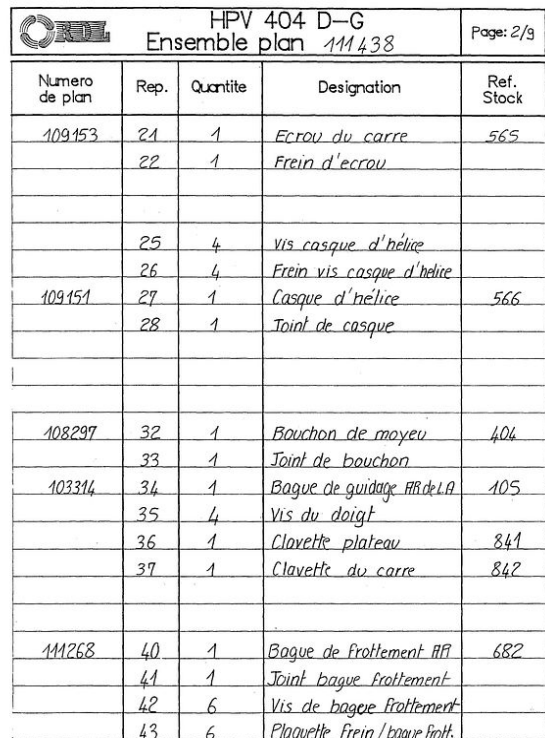 RDL
HPV 404 D-G
Ensemble plan 111438
Page: 2/9
Numero de plan Rep. Quantite Designation Ref. Stock
109153 21 1 Ecrou du carre 565
22 1 Frein d'ecrou
25 4 Vis casque d'hélice
26 4 Frein vis casque d'helice
109151 27 1 Casque d'hélice 566
28 1 Joint de casque
108297 32 1 Bouchon de moyeu 404
33 1 Joint de bouchon
103314 34 1 Bague de guidage AR de LA 105
35 4 Vis du doigt
36 1 Clavette plateau 841
37 1 Clavette du carre 842
111268 40 1 Bague de frottement AR 682
41 1 Joint bague frottement
42 6 Vis de bague frottement
43 6 Plaquette frein/bague frott.